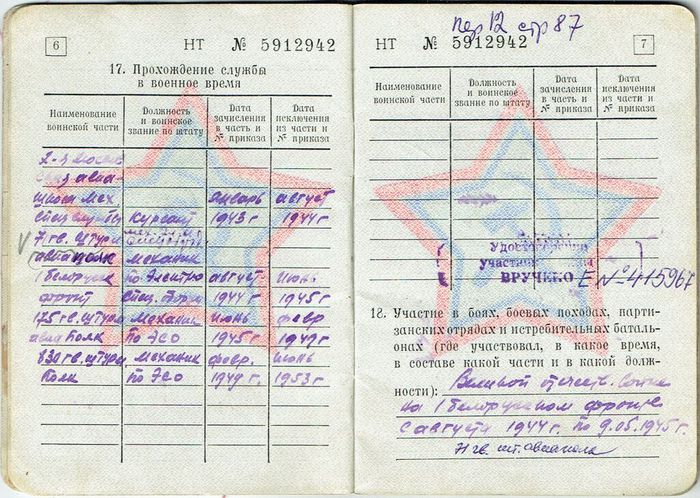 6
НТ № 5912942
17. Прохождение службы
в военное время
Наименование воинской части
Должность и воинское звание по штату
Дата зачисления в часть и № приказа
Дата исключения из части и № приказа
2-я
авиа-
школа мех. январь август
курсант 1943 г 1944 г
7 гв. штурм
авиаполк механик
1 Белорусск по электро август июнь
фронт спец. 1944 г 1945 г
175 гв. штурм механик июнь февр
авиаполк по ЭСО 1945 г 1949 г
830 гв. штурм механик февр. июнь
полк по ЭСО 1949 г. 1953 г
пер 12 стр 87
НТ № 5912942
7
Наименование воинской части
Должность и воинское звание по штату
Дата зачисления в часть и № приказа
Дата исключения из части и № приказа
Удостоверение
участника
ВРУЧЕНО Е № 415967
18. Участие в боях, боевых походах, парти-
занских отрядах и истребительных баталь-
онах (где участвовал, в какое время,
в составе какой части и в какой долж-
ности): Великой отечеств. войне
на 1 белорусском фронте
с августа 1944 г. по 9.05.1945 г.
7 гв. шт. авиаполк